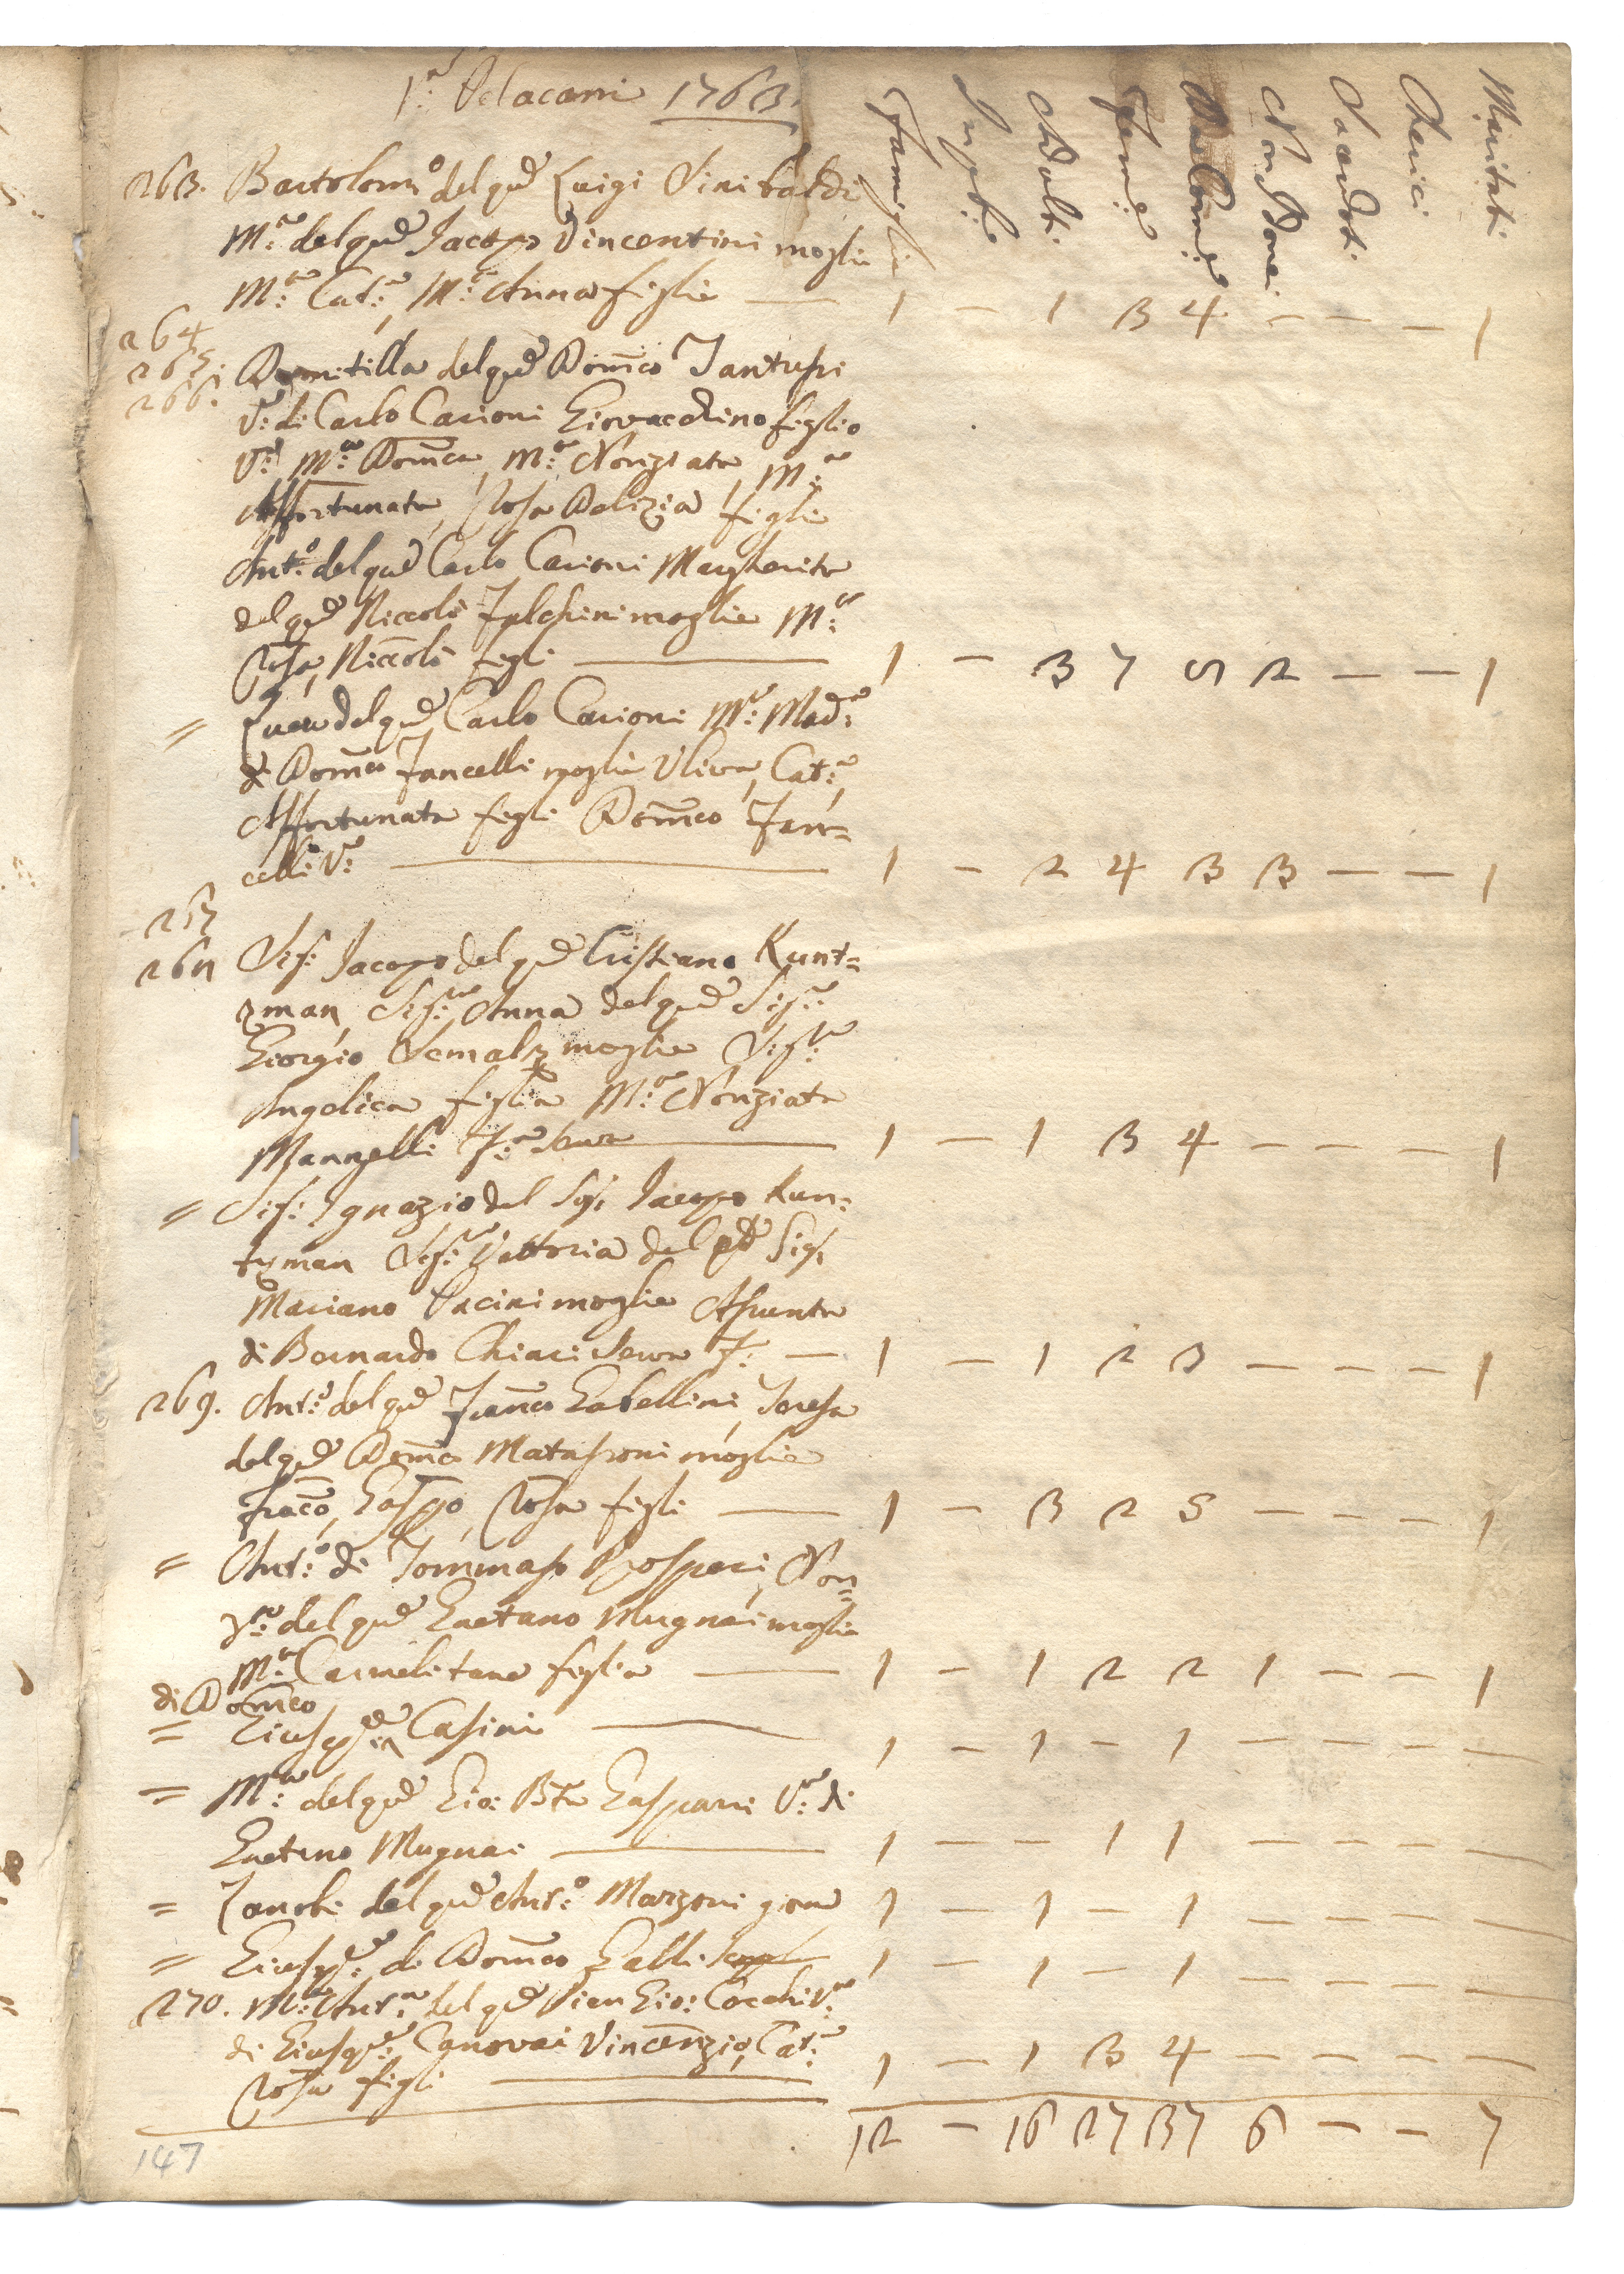 1763.
Famiglie
Adulti
Femẽ
Non Com̃
Sacerdoti
Cherici
Maritati
263. Bartolomᵒ: del qᵐ Luigi Sinibaldi
Mᵃ: del qᵐ Jacopo Vincentini moglie
Mᵃ: Catᵃ:, Mᵃ: Anna figlie — 1 – 1 3 4 – – – 1
264
265.
266. Domitilla del qᵐ Dom̃co
Vᵃ: di Carlo Carioni Giovacchino figlio
Mᵃ: Dom̃ca, Mᵃ: Nonziata, Mᵃ:
Affortunata, Rosa figlie
Antᵒ: del qᵐ Carlo Carioni Margherita
del qᵐ Niccolò moglie Mᵃ:
Rosa, Niccolò figli — 1 – 3 7 5 2 – – 1
= Luca del qᵐ Carlo Carioni Mᵃ: Madᵃ:
di Dom̃co Fancelli moglie Uliva, Catᵃ:,
Affortunata figli Dom̃co Fan=
celli Vᵒ: — 1 – 2 4 3 3 – – 1
267
268 Sigʳ: Jacopo del qᵐ Cristiano Kunt=
zman, Sigʳᵃ: Anna del qᵐ Sigʳ:
Giorgio moglie Sigʳᵃ:
Angelica figlia Mᵃ: Nonziata
Mannelli Fᵃ: serva — 1 – 1 3 4 – – – 1
= Sigʳ: Ignazio del Sigʳ: Jacopo Kun=
tzman Sigʳᵃ: Vettoria del qᵐ Sigʳ:
Mariano Pacini moglie Assunta
di Bernardo Chiari serva F: — 1 – 1 2 3 – – – 1
269. Antᵒ: del qᵐ Franc̃o Gabellini, Teresa
del qᵐ Dom̃co Matassoni moglie
Franc̃o, Gaspõ, Rosa figli — 1 – 3 2 5 – – – 1
= Antᵒ: di Tommaso Prosperi, Non=
zᵃ: del qᵐ Gaetano Mugnai moglie
Mᵃ: Carmelitana figlia — 1 – 1 2 2 1 – – 1
di Dom̃co
= Giuspᵉ: Casini — 1 – 1 – 1 – – – –
= Mᵃ: del qᵐ Gio: Btã Gaspari Vᵃ: di
Gaetano Mugnai — 1 – – 1 1 – – – –
= Zanobi del qᵐ Antᵒ: Marzoni 1 – 1 – 1 – – – –
= Giuspᵉ: di Dom̃co Galli 1 – 1 – 1 – – – –
270. Mᵃ: Antᵃ: del qᵐ Pier Gio: Cocchi Vᵃ:
di Giuspᵉ: Canovai Vincenzio, Catᵃ:
Rosa figli — 1 – 1 3 4 – – – –
12 – 16 27 37 6 – – 7
147